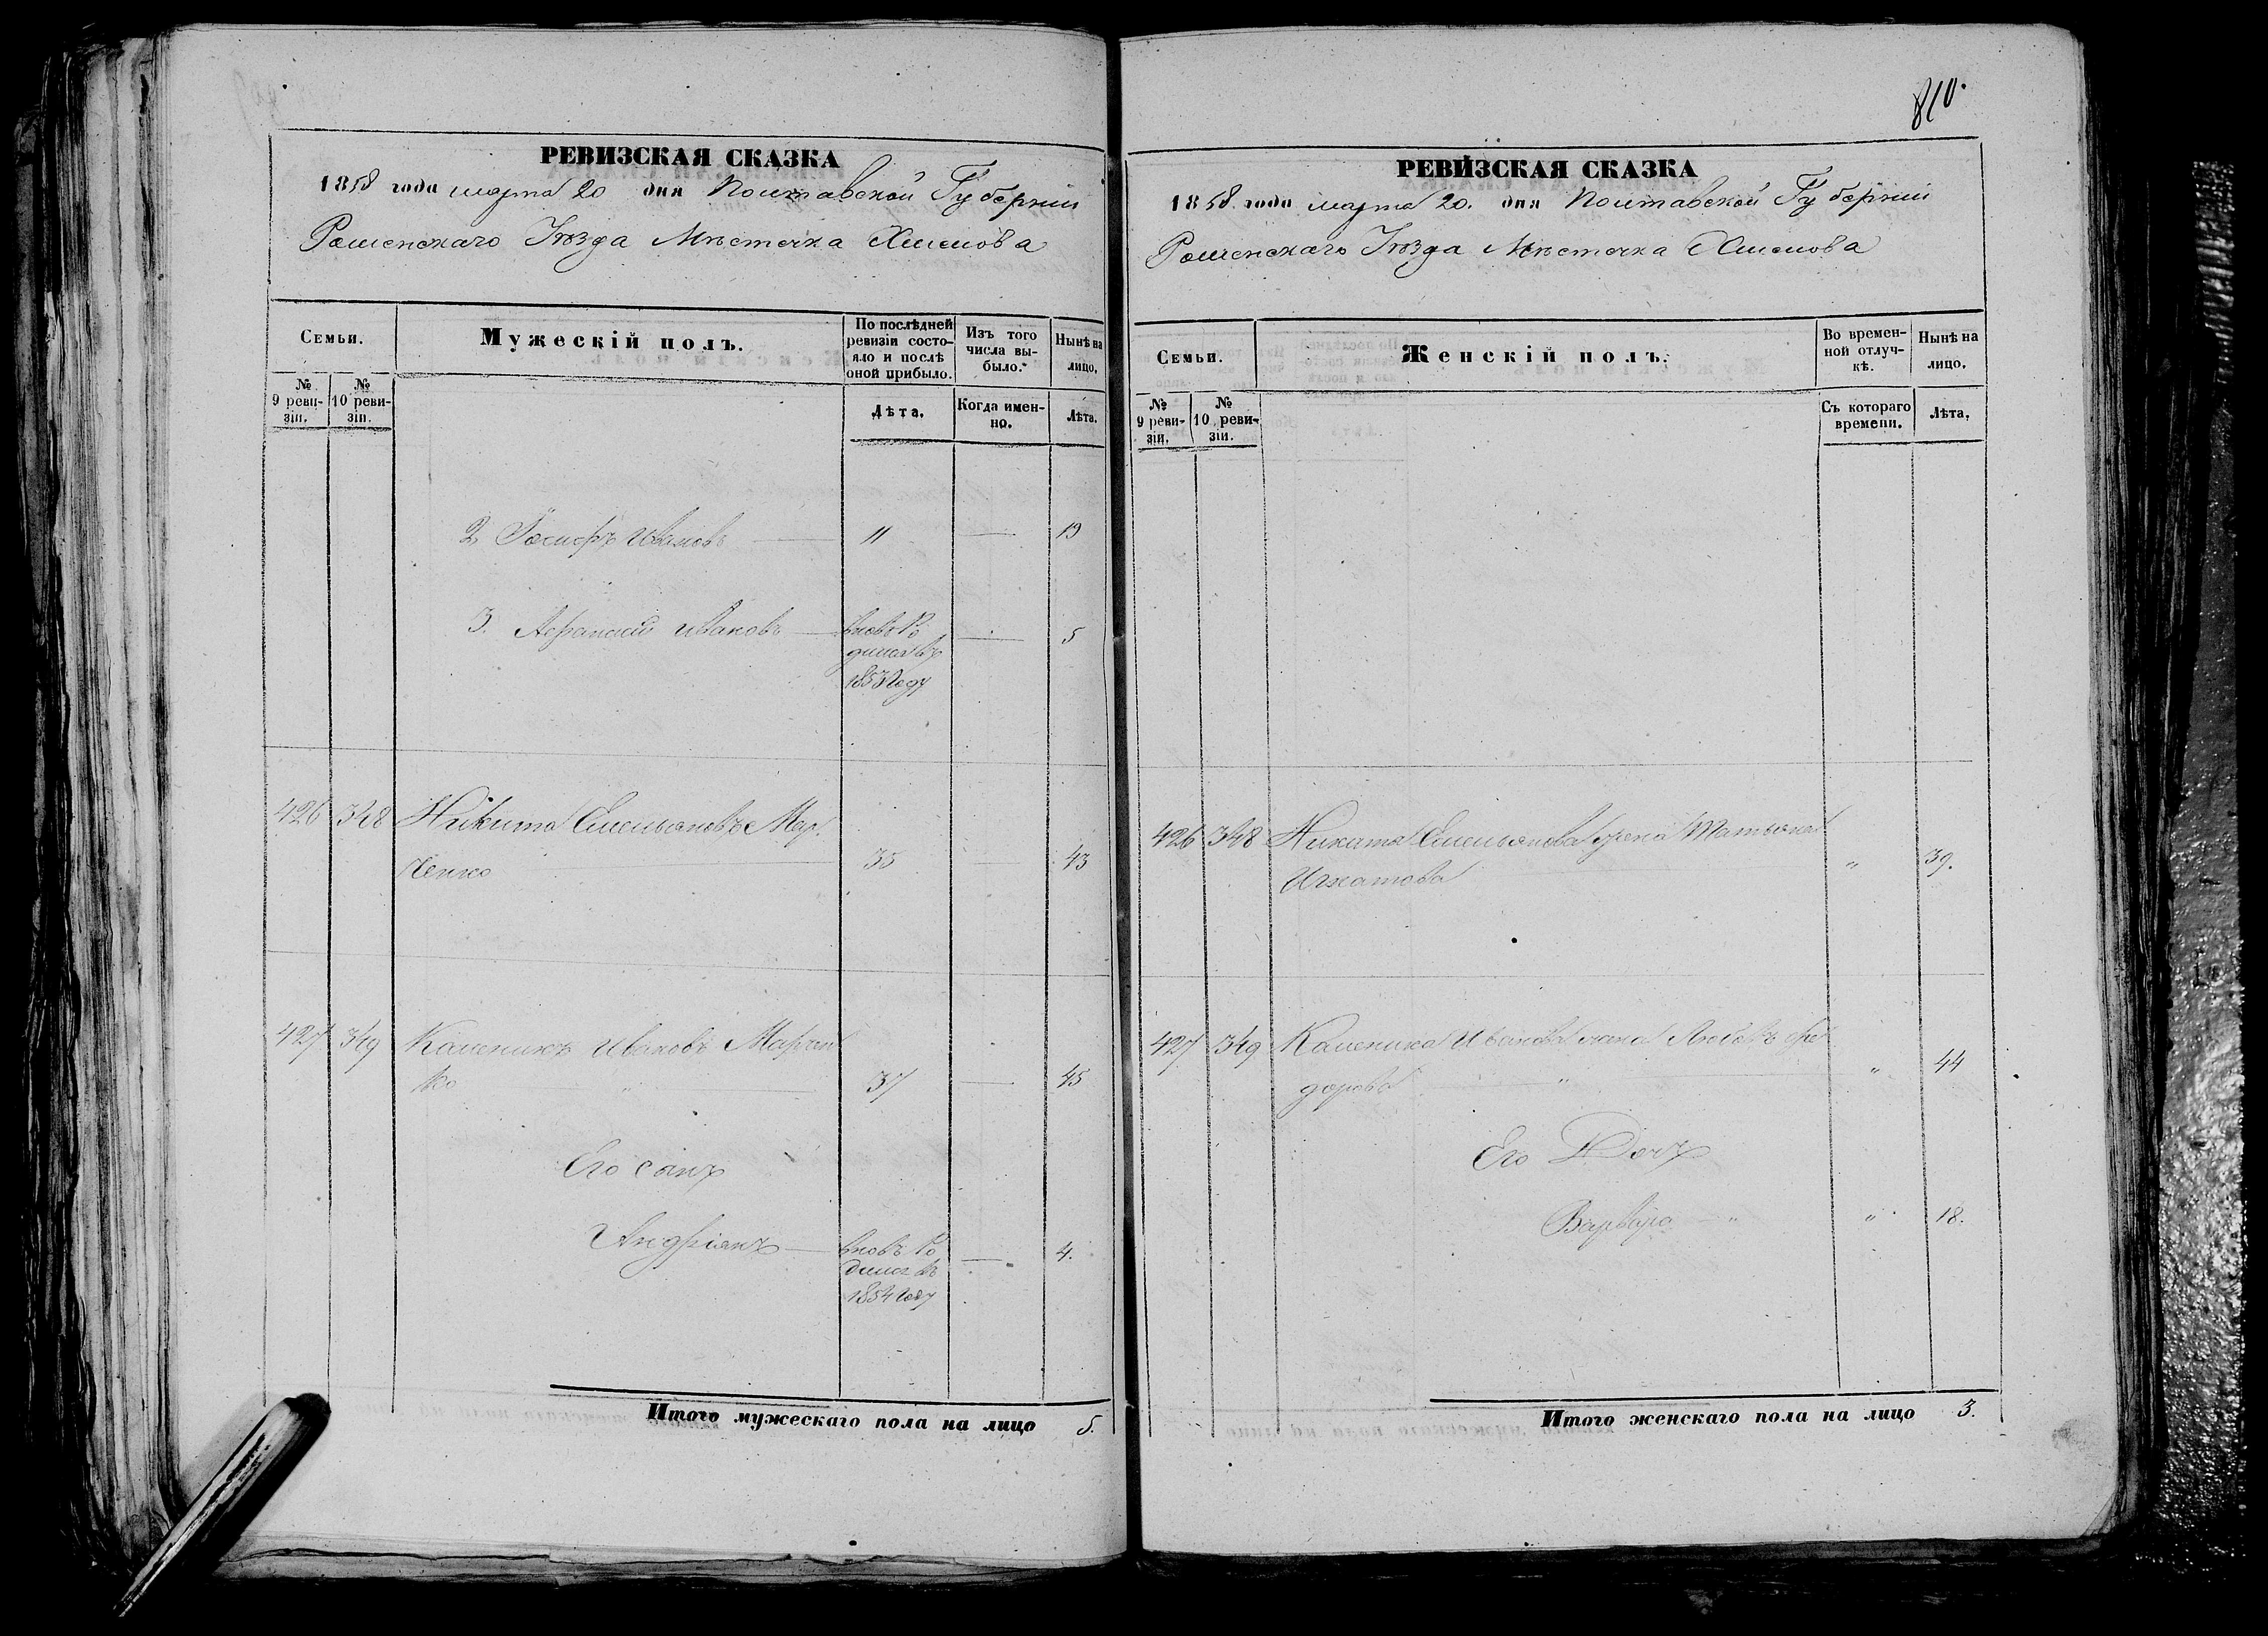 810.
РЕВИЗСКАЯ СКАЗКА
1858 года марта 20 дня Полтавской Губерніи
Роменскаго Уѣзда Мѣстечка Хмелова
Семьи.
Мужескій полъ.
По послѣдней ревизіи состояло и послѣ оной прибыло.
Изъ того числа выбыло.
Нынѣ на лицо.
№ 9 ревизіи.
№ 10 ревизіи.
Лѣта.
Когда именно.
Лѣта.
2 Іосифъ Ивановъ 11 — 19
3. Афанасій Ивановъ вновь Ро — 5
дился въ
1853 году
426 348 Никита Емельяновъ Мар
ченко 35 — 43
427 349 Каленикъ Ивановъ Марчен
ко " 37 — 45
Его сынъ
Андріянъ вновь Ро — 4.
дился въ
1854 году
Итого мужескаго пола на лицо 5.
РЕВИЗСКАЯ СКАЗКА
1858 года марта 20. дня Полтавской Губерніи
Роменскаго Уѣзда Мѣстечка Хмелова
Семьи.
Женскій полъ.
Во временной отлучкѣ.
Нынѣ на лицо.
№ 9 ревизіи.
№ 10 ревизіи.
Съ котораго времени.
Лѣта.
426 348 Никиты Емельянова жена Татьяна
Игнатова " 39.
427 349 Каленика Иванова жена Любовь Фе
дорова " " 44
Его Дочь
Варвара " " 18.
Итого женскаго пола на лицо 3.